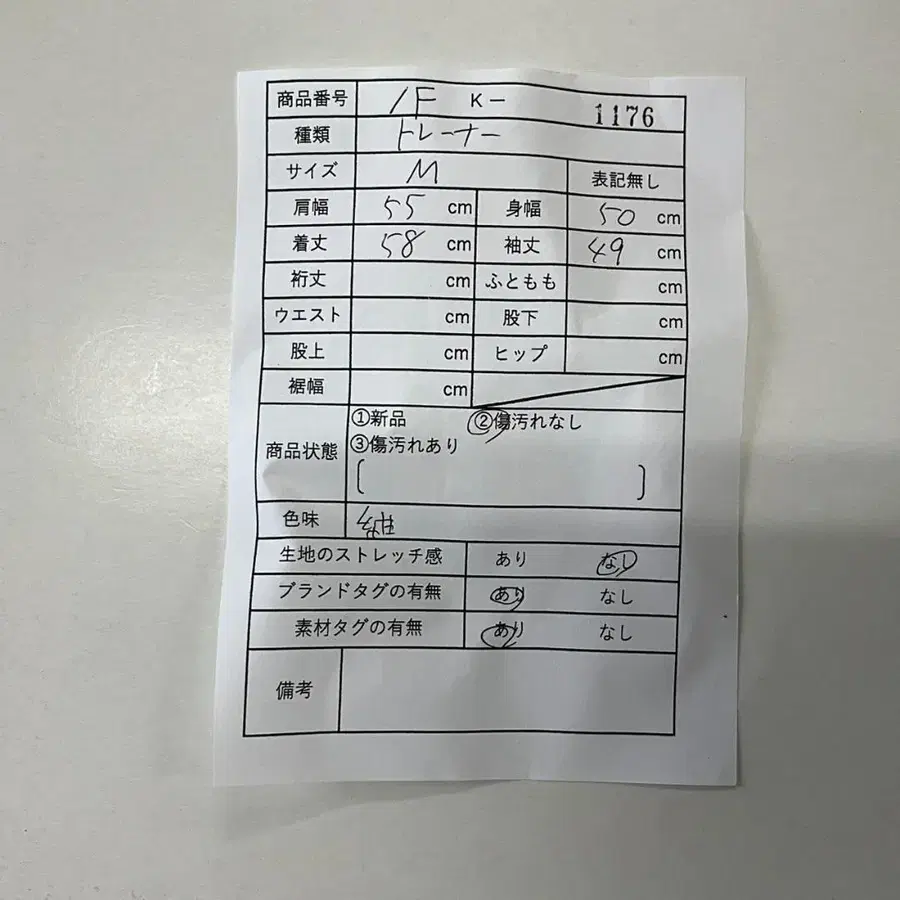 商品番号 1F K- 1176
種類 トレーナー
サイズ M 表記無し
肩幅 55 cm 身幅 50 cm
着丈 58 cm 袖丈 49 cm
裄丈 cm ふともも cm
ウエスト cm 股下 cm
股上 cm ヒップ cm
裾幅 cm
商品状態 ①新品 ②傷汚れなし
③傷汚れあり
[ ]
色味
生地のストレッチ感 あり なし
ブランドタグの有無 あり なし
素材タグの有無 あり なし
備考